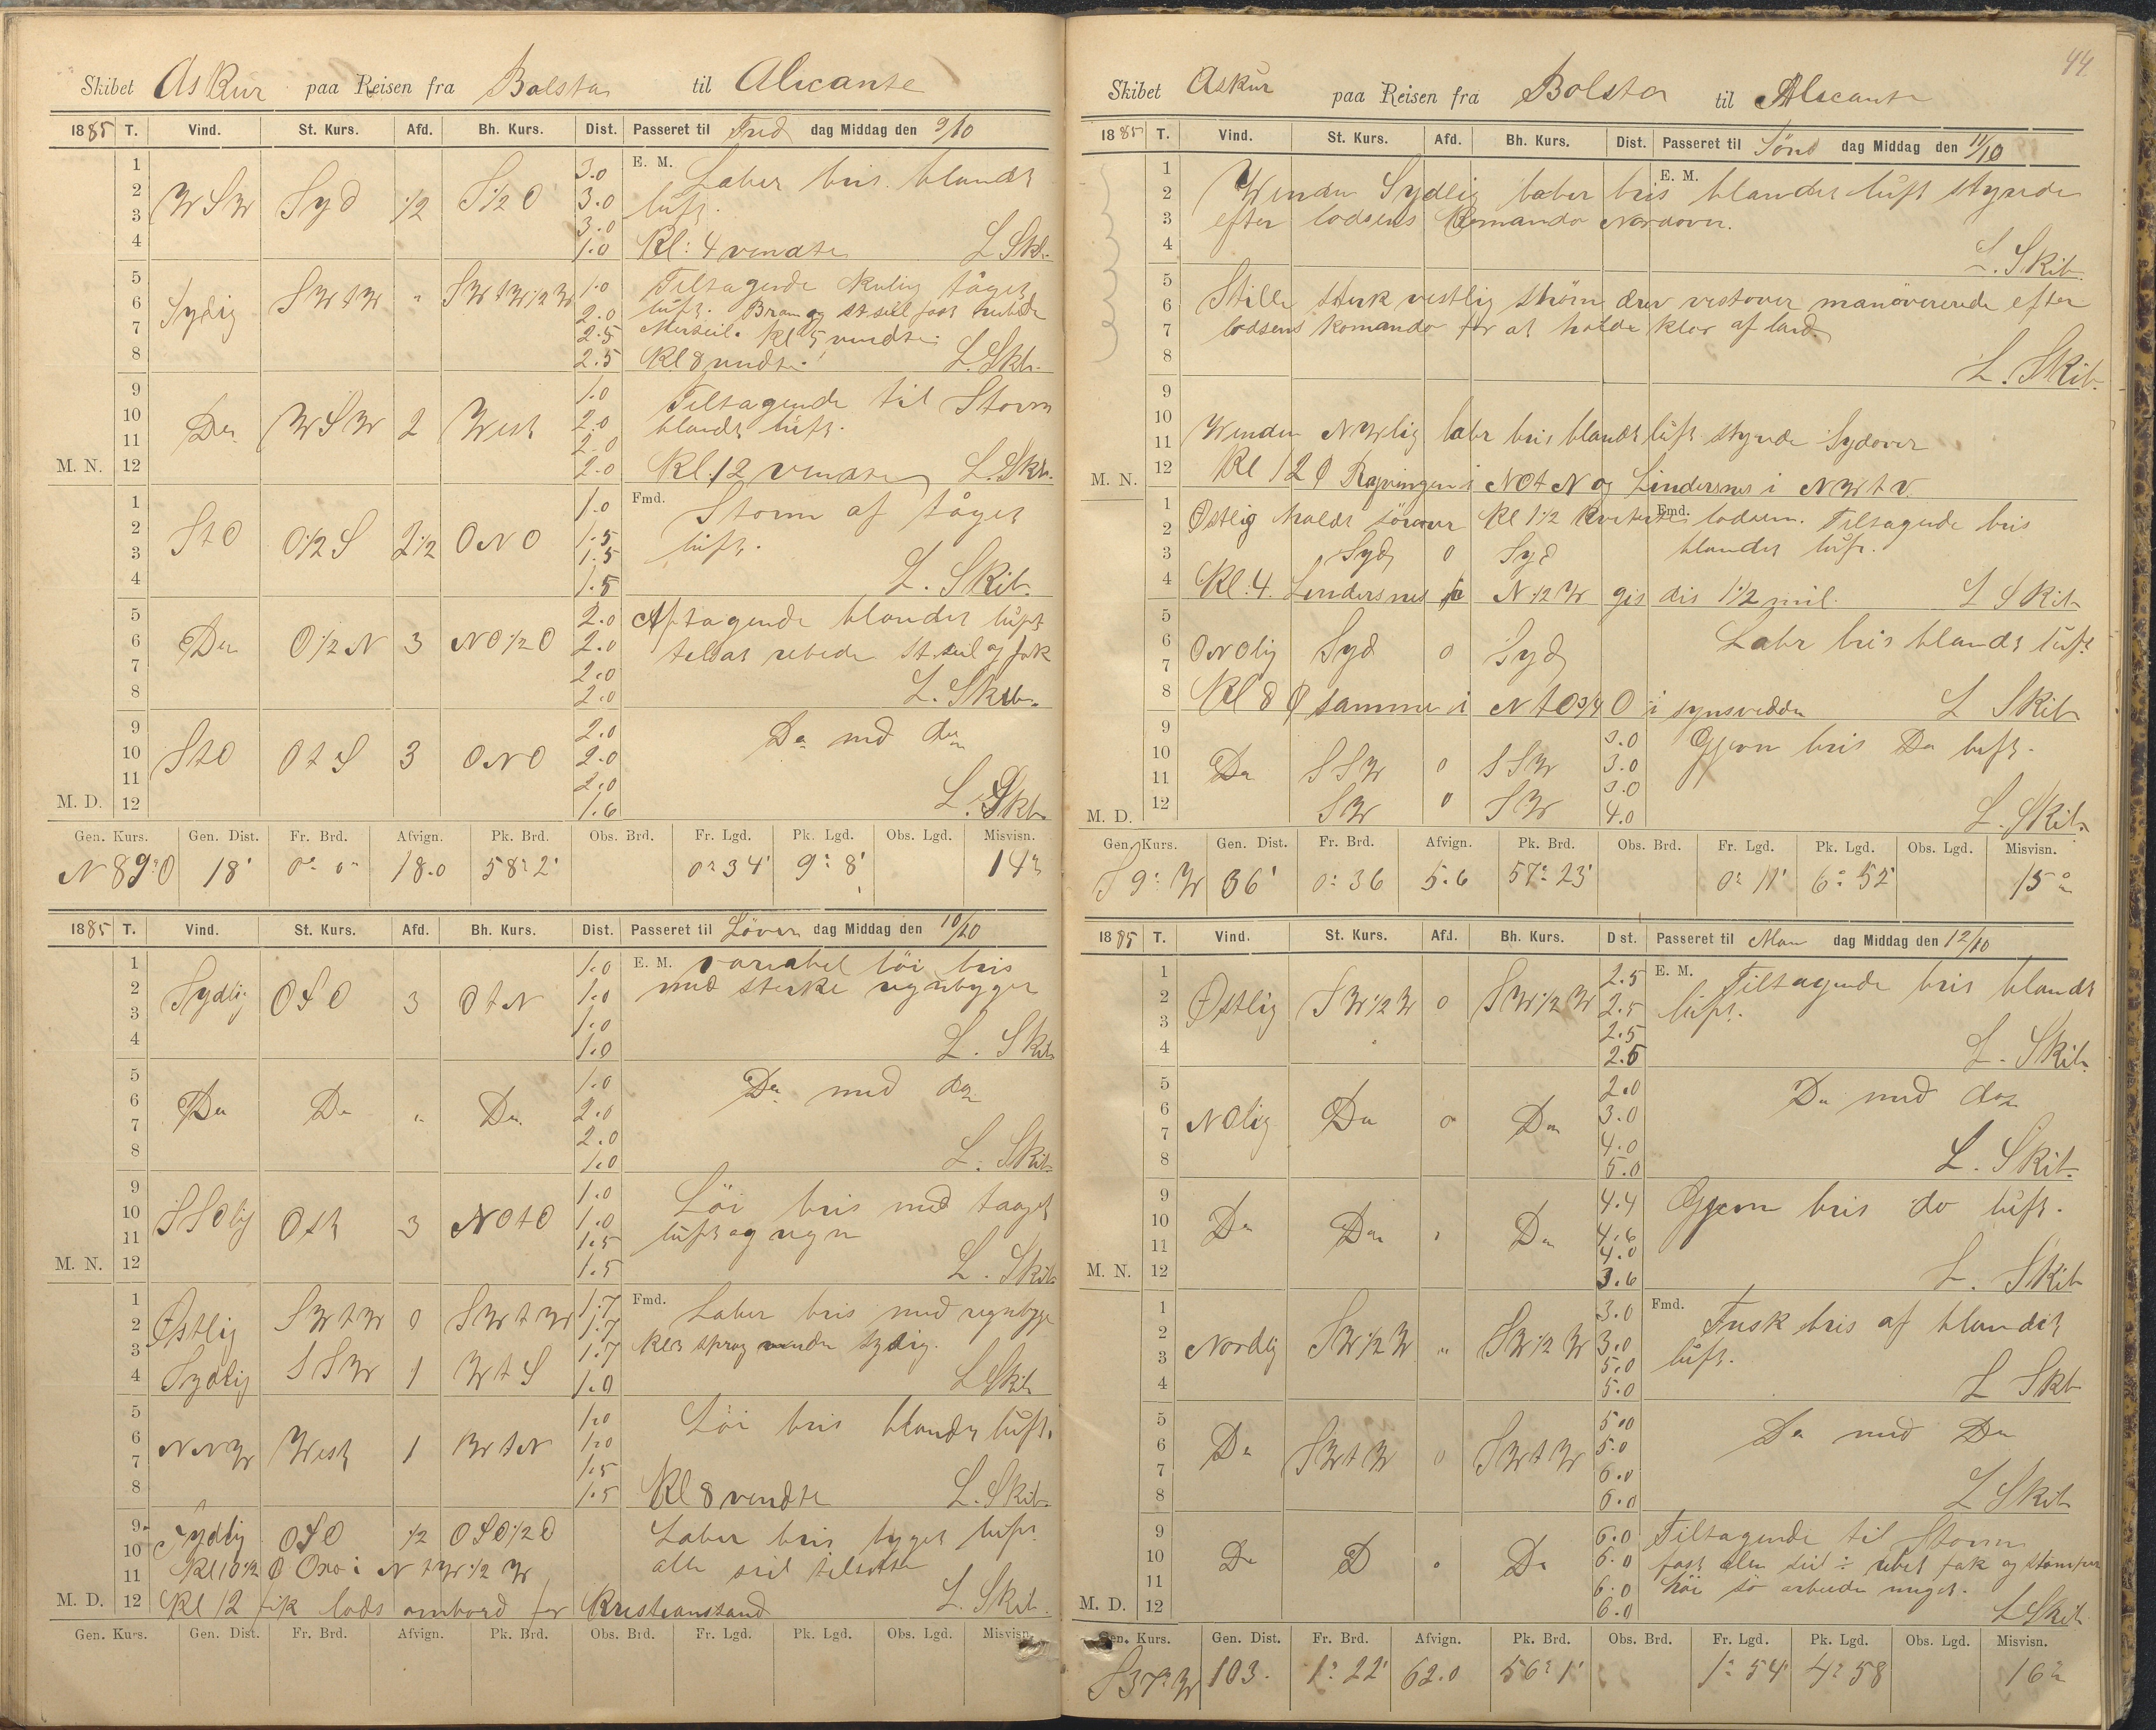 Skibet Askur paa Reisen fra Bolsta til Alicante
1885 T. Vind. St. Kurs. Afd. Bh. Kurs. Dist. Passeret til Fred dag Middag den 9/10
1 3.0 E. M. Laber bris blandt
2 WSW Syd 1/2 S1/2O 3.0 luft.
3 3.0
4 1.0 Kl: 4 vendte L Skb.
5 1.0 Tiltagende Kulig tåget
6 Sydlig SWtW " SWtW1/2W 2.0 luft. Bram og st.seil fast rebede
7 2.5 Merseil. Kl 5 vendte
8 2.5 Kl 8 vendte. L. Skb.
9 1.0 Tiltagende til Storm
10 Do WSW 2 West 2.0 blandt luft.
11 2.0
M. N. 12 2.0 Kl. 12 vendte L. Skb.
1 1.0 Fmd. Storm af tåget
2 StO O1/2S 2 1/2 ONO 1.5 luft.
3 1.5
4 1.5 L. Skib.
5 2.0 Aftagende blandet luft
6 Do O1/2N 3 NO1/2O 2.0 tilsat rebede St.seil og fok
7 2.0
8 2.0 L. Skib.
9 2.0 Do med do
10 StO OtS 3 ONO 2.0
11 2.0
M. D. 12 1.6 L. Skb.
Gen. Kurs. Gen. Dist. Fr. Brd. Afvign. Pk. Brd. Obs. Brd. Fr. Lgd. Pk. Lgd. Obs. Lgd. Misvisn.
N 89° O 18' 0° 0' 18.0 58° 2' 0° 34' 9° 8' 14°
1885 T. Vind. St. Kurs. Afd. Bh. Kurs. Dist. Passeret til Löver dag Middag den 10/10
1 1.0 E. M. variabel löi bris
2 Sydlig OSO 3 OtN 1.0 med sterke regnbyger
3 1.0
4 1.0 L. Skib
5 1.0 Do med do
6 Do Do " Do 2.0
7 2.0
8 1.0 L. Skib
9 1.0 Löi bris med taaget
10 SSOlig Ost 3 NOtO 1.0 luft og regn
11 1.5
M. N. 12 1.5 L. Skib
1 1.7 Fmd. Laber bris med regnbyge
2 Østlig SWtW 0 SWtW 1.7
3 1.7 Kl 3 sprag vinden sydlig.
4 Sydlig SSW 1 WtS 1.0 L Skib
5 1.0 Löi bris blandt luft.
6 NNW West 1 WtN 1.0
7 1.5
8 1.5 Kl 8 vendte L. Skib.
9 Sydlig OSO 1/2 OSO1/2O Laber bris byget luft
10 alle seil tilsatte
11 Kl 10 1/2 Ø Oxo i NtW1/2W
M. D. 12 Kl 12 fik lods ombord for Kristianssand L. Skib.
Gen. Kurs. Gen. Dist. Fr. Brd. Afvign. Pk. Brd. Obs. Brd. Fr. Lgd. Pk. Lgd. Obs. Lgd. Misvisn.
44
Skibet Askur paa Reisen fra Bolsta til Alicante
1885 T. Vind. St. Kurs. Afd. Bh. Kurs. Dist. Passeret til Sönd dag Middag den 11/10
1 E. M.
2 Vinden Sydlig laber bris blandet luft styrede
3 efter lodsens Komando Nordover.
4 L. Skib.
5
6 Stille sterk vestlig ström drev vestover manövererede efter
7 lodsens komando for at holde klar af land.
8 L. Skib.
9
10
11 Vinden NWlig labr bris blandt luft styrede Sydover
M. N. 12 Kl 12 Ø Ryvingen i NOtN og Lindersnes i NWtV.
1 Fmd.
2 Østlig holdt sörover Kl 1 1/2 kviterte lodsen. Tiltagende bris
3 Syd 0 Syd blandet luft.
4 Kl. 4. Lindersnes i N1/2W gis dis 1 1/2 mil. L Skib
5 Labr bris blandt luft
6 ONOlig Syd 0 Syd
7
8 Kl 8 Ø samme i NtO3/4O i synsvidde L Skib
9 3.0 Gjevn bris Do luft.
10 Do SSW 0 SSW 3.0
11 3.0
M. D. 12 SW 0 SW 4.0 L. Skib
Gen. Kurs. Gen. Dist. Fr. Brd. Afvign. Pk. Brd. Obs. Brd. Fr. Lgd. Pk. Lgd. Obs. Lgd. Misvisn.
S 9° W 36' 0° 36 5.6 57° 23' 0° 11' 6° 52' 15°
1885 T. Vind. St. Kurs. Afd. Bh. Kurs. Dist. Passeret til Man dag Middag den 12/10
1 2.5 E. M. Tiltagende bris blandt
2 Østlig SW1/2W 0 SW1/2W 2.5 luft.
3 2.5
4 2.5 L. Skib.
5 2.0 Do med do
6 NOlig Do 0 Do 3.0
7 4.0
8 5.0 L. Skib
9 4.4 Gjevn bris do luft.
10 Do Do " Do 4.6
11 4.0
M. N. 12 3.6 L. Skib
1 3.0 Fmd. Frisk bris af blandet
2 Nordlig SW1/2W " SW1/2W 3.0 luft.
3 5.0
4 5.0 L Skb
5 5.0 Do med Do
6 Do SWtW 0 SWtW 5.0
7 6.0
8 6.0 L Skib
9 6.0 Tiltagende til Storm
10 Do D " Do 6.0 fast alle seil ÷ rebet fok og stompen
11 6.0 höi sö arbeide meget.
M. D. 12 6.0 L Skib.
Gen. Kurs. Gen. Dist. Fr. Brd. Afvign. Pk. Brd. Obs. Brd. Fr. Lgd. Pk. Lgd. Obs. Lgd. Misvisn.
S 37° W 103. 1° 22' 62.0 56° 1' 1° 54' 4° 58 16°